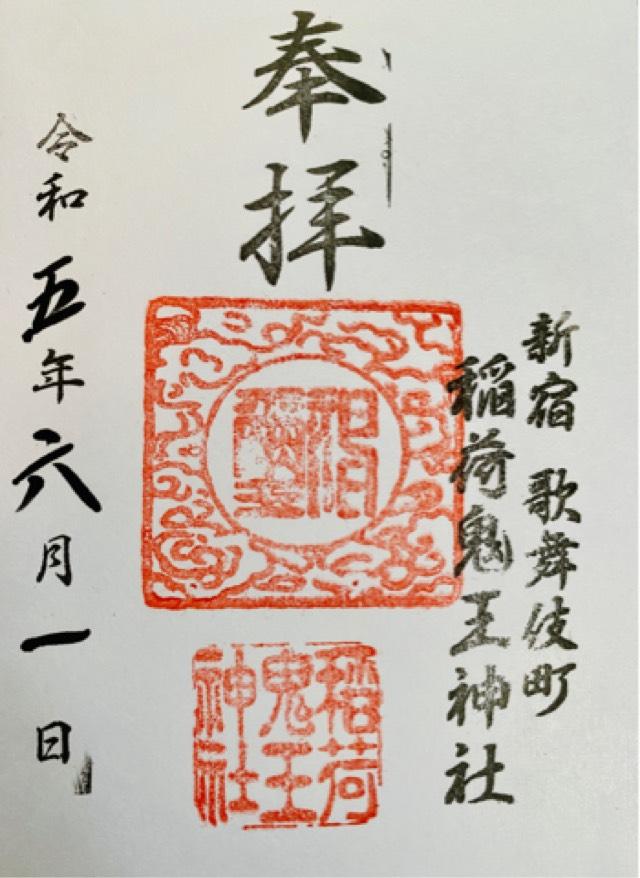 奉拝
新宿 歌舞伎町
稲荷鬼王神社
稲荷
鬼王
神社
令和五年六月一日